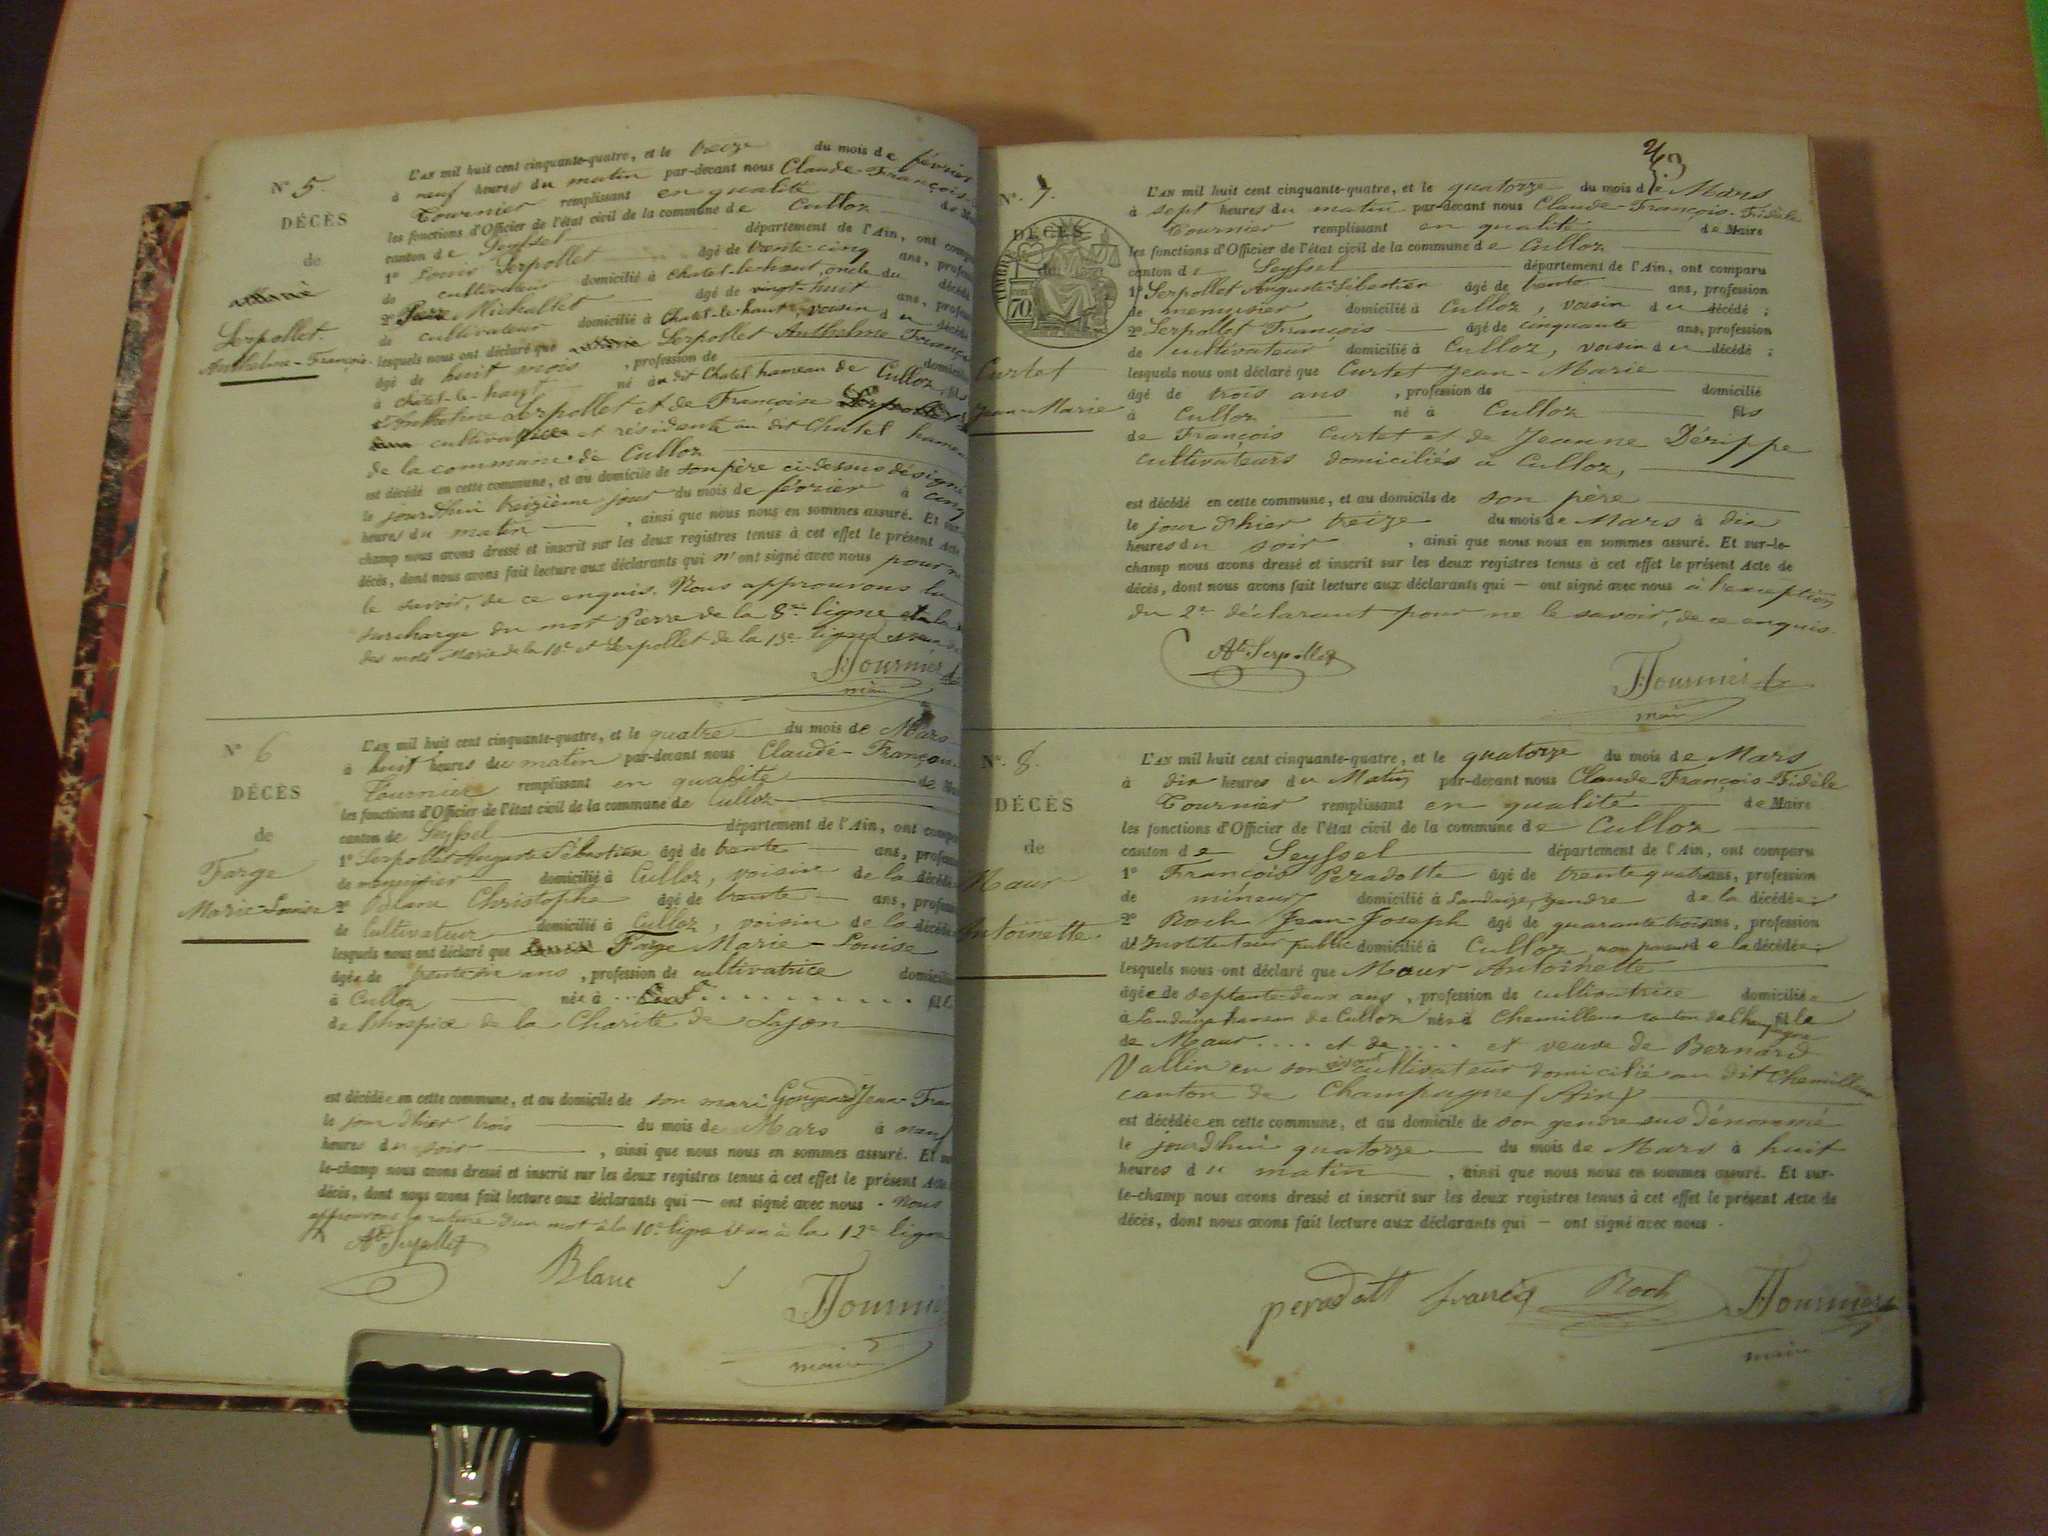 N° 5.
DÉCÈS
de
Serpollet
Anthelme-François
L'AN mil huit cent cinquante-quatre, et le treize du mois de février
à neuf heures du matin par-devant nous Claude-François
Tournier remplissant en qualité de
les fonctions d'Officier de l'état civil de la commune de Culloz
canton de Seyssel département de l'Ain, ont
1° Louis Serpollet âgé de trente-cinq ans,
de cultivateur domicilié à Chatel-le-haut, oncle du décédé
2° Michallet âgé de vingt-huit ans,
de cultivateur domicilié à Chatel-le-haut, voisin du décédé
lesquels nous ont déclaré que Serpollet Anthelme
âgé de huit mois, profession de
à Chatel-le-haut né au dit Chatel hameau de Culloz
Serpollet et de Françoise Serpollet
et résidants au dit Chatel
de la commune de Culloz
est décédé en cette commune, et au domicile de son père ci-dessus désigné
le jourd'hui treizième jour du mois de février à cinq
heures du matin, ainsi que nous nous en sommes assuré. Et sur
champ nous avons dressé et inscrit sur les deux registres tenus à cet effet le présent Acte
décès, dont nous avons fait lecture aux déclarants qui n'ont signé avec nous pour ne
le savoir, de ce enquis. Nous approuvons la
surcharge du mot Pierre de la 8e ligne et la
des mots Marie de la 10e et Serpollet de la 13e ligne
Tournier
maire
N° 6
DÉCÈS
de
Farge
Marie-Louise
L'AN mil huit cent cinquante-quatre, et le quatre du mois de Mars
à huit heures du matin par-devant nous Claude-François
Tournier remplissant en qualité de
les fonctions d'Officier de l'état civil de la commune de Culloz
canton de Seyssel département de l'Ain, ont
1° Serpollet Auguste Sébastien âgé de trente ans,
de menuisier domicilié à Culloz, voisin de la décédée
2° Blanc Christophe âgé de trente ans,
de cultivateur domicilié à Culloz, voisin de la décédée
lesquels nous ont déclaré que Farge Marie-Louise
âgée de ans, profession de cultivatrice
à Culloz née à
de l'hospice de la Charité de Lyon
est décédée en cette commune, et au domicile de son mari Jean
le jour d'hier trois du mois de Mars à neuf
heures du soir, ainsi que nous nous en sommes assuré. Et
le-champ nous avons dressé et inscrit sur les deux registres tenus à cet effet le présent Acte
décès, dont nous avons fait lecture aux déclarants qui — ont signé avec nous. Nous
approuvons la rature d'un mot à la 10e ligne et un à la 12e ligne
Ate Serpollet
Blanc
Tournier
maire
N°. 7.
DÉCÈS
de
TIMBRE
70
Curtet
Jean-Marie
L'AN mil huit cent cinquante-quatre, et le quatorze du mois de Mars
à sept heures du matin par-devant nous Claude-François-Fidèle
Tournier remplissant en qualité de Maire
les fonctions d'Officier de l'état civil de la commune de Culloz
canton de Seyssel département de l'Ain, ont comparu
1° Serpollet Auguste-Sébastien âgé de trente ans, profession
de menuisier domicilié à Culloz, voisin du décédé;
2° Serpollet François âgé de cinquante ans, profession
de cultivateur domicilié à Culloz, voisin du décédé;
lesquels nous ont déclaré que Curtet Jean-Marie
âgé de trois ans, profession de domicilié
à Culloz né à Culloz fils
de François Curtet et de Jeanne Dérippe
cultivateurs domiciliés à Culloz,
est décédé en cette commune, et au domicile de son père
le jour d'hier treize du mois de Mars à dix
heures du soir, ainsi que nous nous en sommes assuré. Et sur-le-
champ nous avons dressé et inscrit sur les deux registres tenus à cet effet le présent Acte de
décès, dont nous avons fait lecture aux déclarants qui — ont signé avec nous à l'exception
du 2e déclarant pour ne le savoir, de ce enquis.
Ate Serpollet
Tournier
maire
N°. 8.
DÉCÈS
de
Mœur
Antoinette.
L'AN mil huit cent cinquante-quatre, et le quatorze du mois de Mars
à dix heures du Matin par-devant nous Claude François-Fidèle
Tournier remplissant en qualité de Maire
les fonctions d'Officier de l'état civil de la commune de Culloz
canton de Seyssel département de l'Ain, ont comparu
1° François Peradotte âgé de trente quatre ans, profession
de mineur domicilié à Landaize, gendre de la décédée;
2° Roch Jean-Joseph âgé de quarante trois ans, profession
d'Instituteur public domicilié à Culloz, non parent de la décédée;
lesquels nous ont déclaré que Mœur Antoinette
âgée de septante-deux ans, profession de cultivatrice domiciliée
à Landaize hameau de Culloz née à Chemillieu canton de Champagne fille
de Mœur .... et de .... et veuve de Bernard
Vallin en son vivant cultivateur domicilié au dit Chemillieu
canton de Champagne (Ain)
est décédée en cette commune, et au domicile de son gendre sus dénommé
le jourd'hui quatorze du mois de Mars à huit
heures du matin, ainsi que nous nous en sommes assuré. Et sur-
le-champ nous avons dressé et inscrit sur les deux registres tenus à cet effet le présent Acte de
décès, dont nous avons fait lecture aux déclarants qui — ont signé avec nous.
peradott
Roch
Tournier
maire